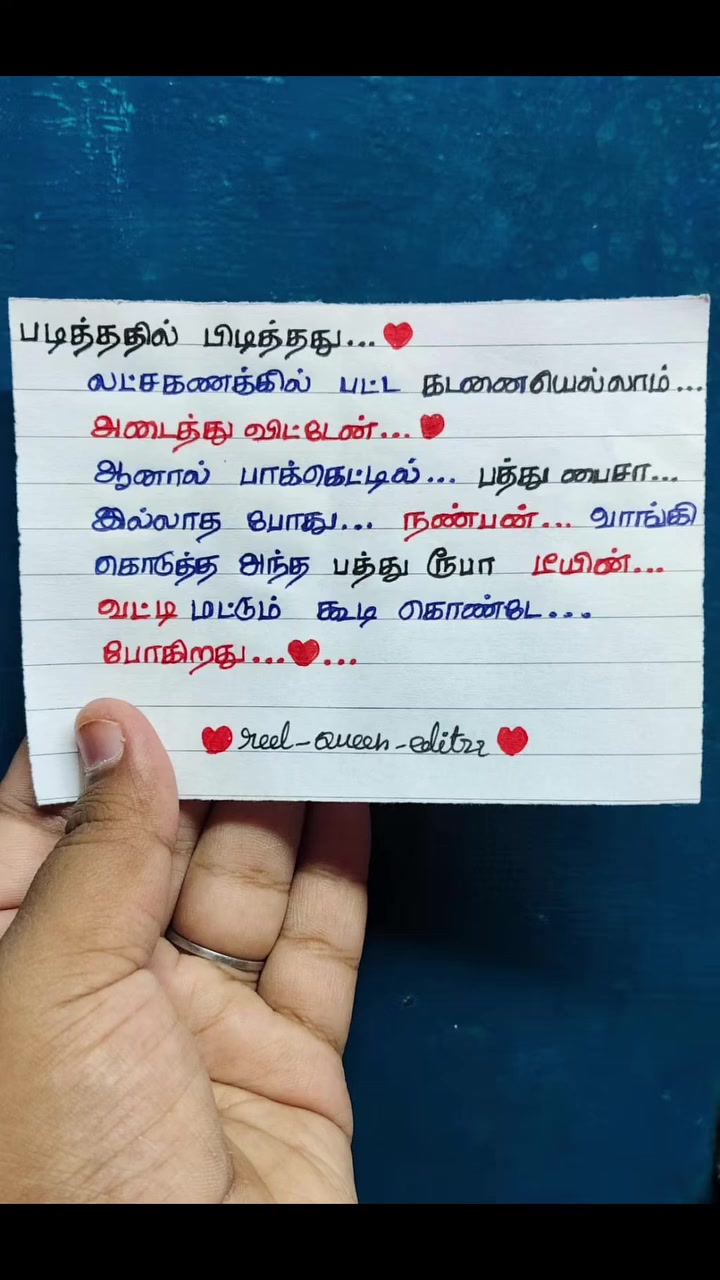 படித்ததில் பிடித்தது...❤
லட்சகணக்கில் பட்ட கடனையெல்லாம்...
அடைத்து விட்டேன்...❤
ஆனால் பாக்கெட்டில்... பத்து பைசா...
இல்லாத போது... நண்பன்... வாங்கி
கொடுத்த அந்த பத்து ரூபா டீயின்...
வட்டி மட்டும் கூடி கொண்டே...
போகிறது...❤...
❤reel-queen-editzz❤